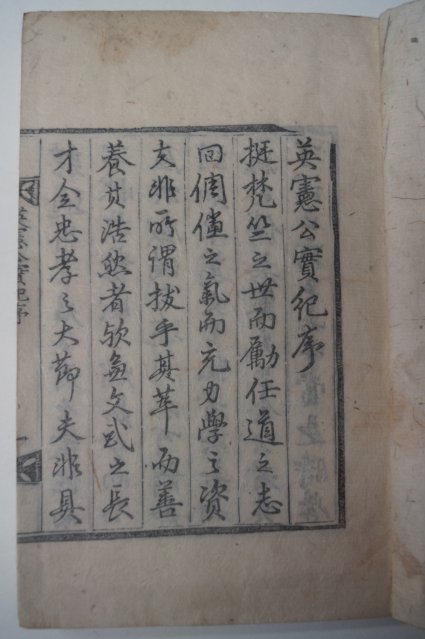 英憲公實紀序
挺梵竺之世而勵任道之志
回倜儻之氣而充力學之資
玄非所謂拔乎其萃而善
養其浩然者歟兼文武之長
才全忠孝之大節夫非具
英憲公實紀序